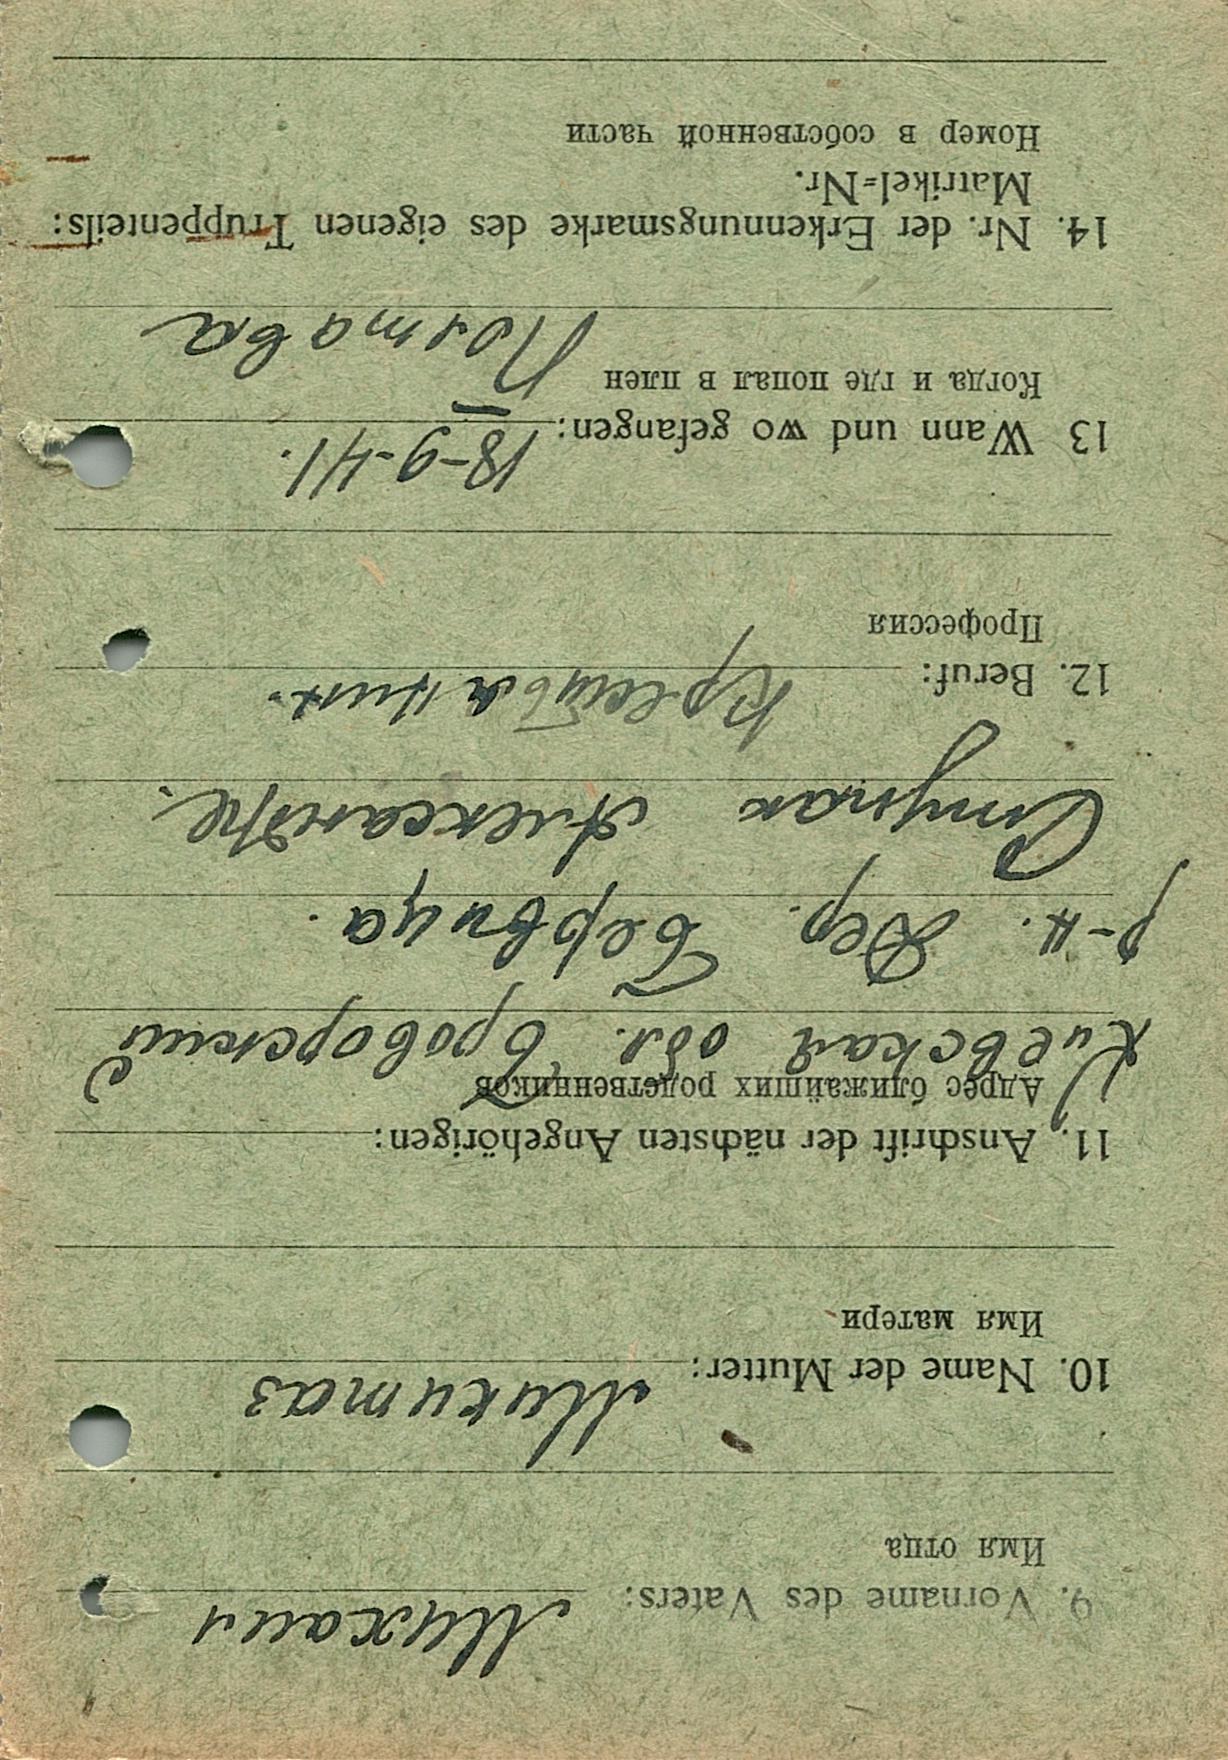 9. Vorname des Vaters: Михаил
Имя отца
10. Name der Mutter: Микитаз
Имя матери
11. Anschrift der nächsten Angehörigen:
Адрес ближайших родственников
Киевская обл. Броворский
р-н. Дер. Бервица.
Ступак Александр.
12. Beruf: Крестьянин.
Профессия
13 Wann und wo gefangen: 18-9-41.
Когда и где попал в плен
Полтава
14. Nr. der Erkennungsmarke des eigenen Truppenteils:
Matrikel=Nr.
Номер в собственной части